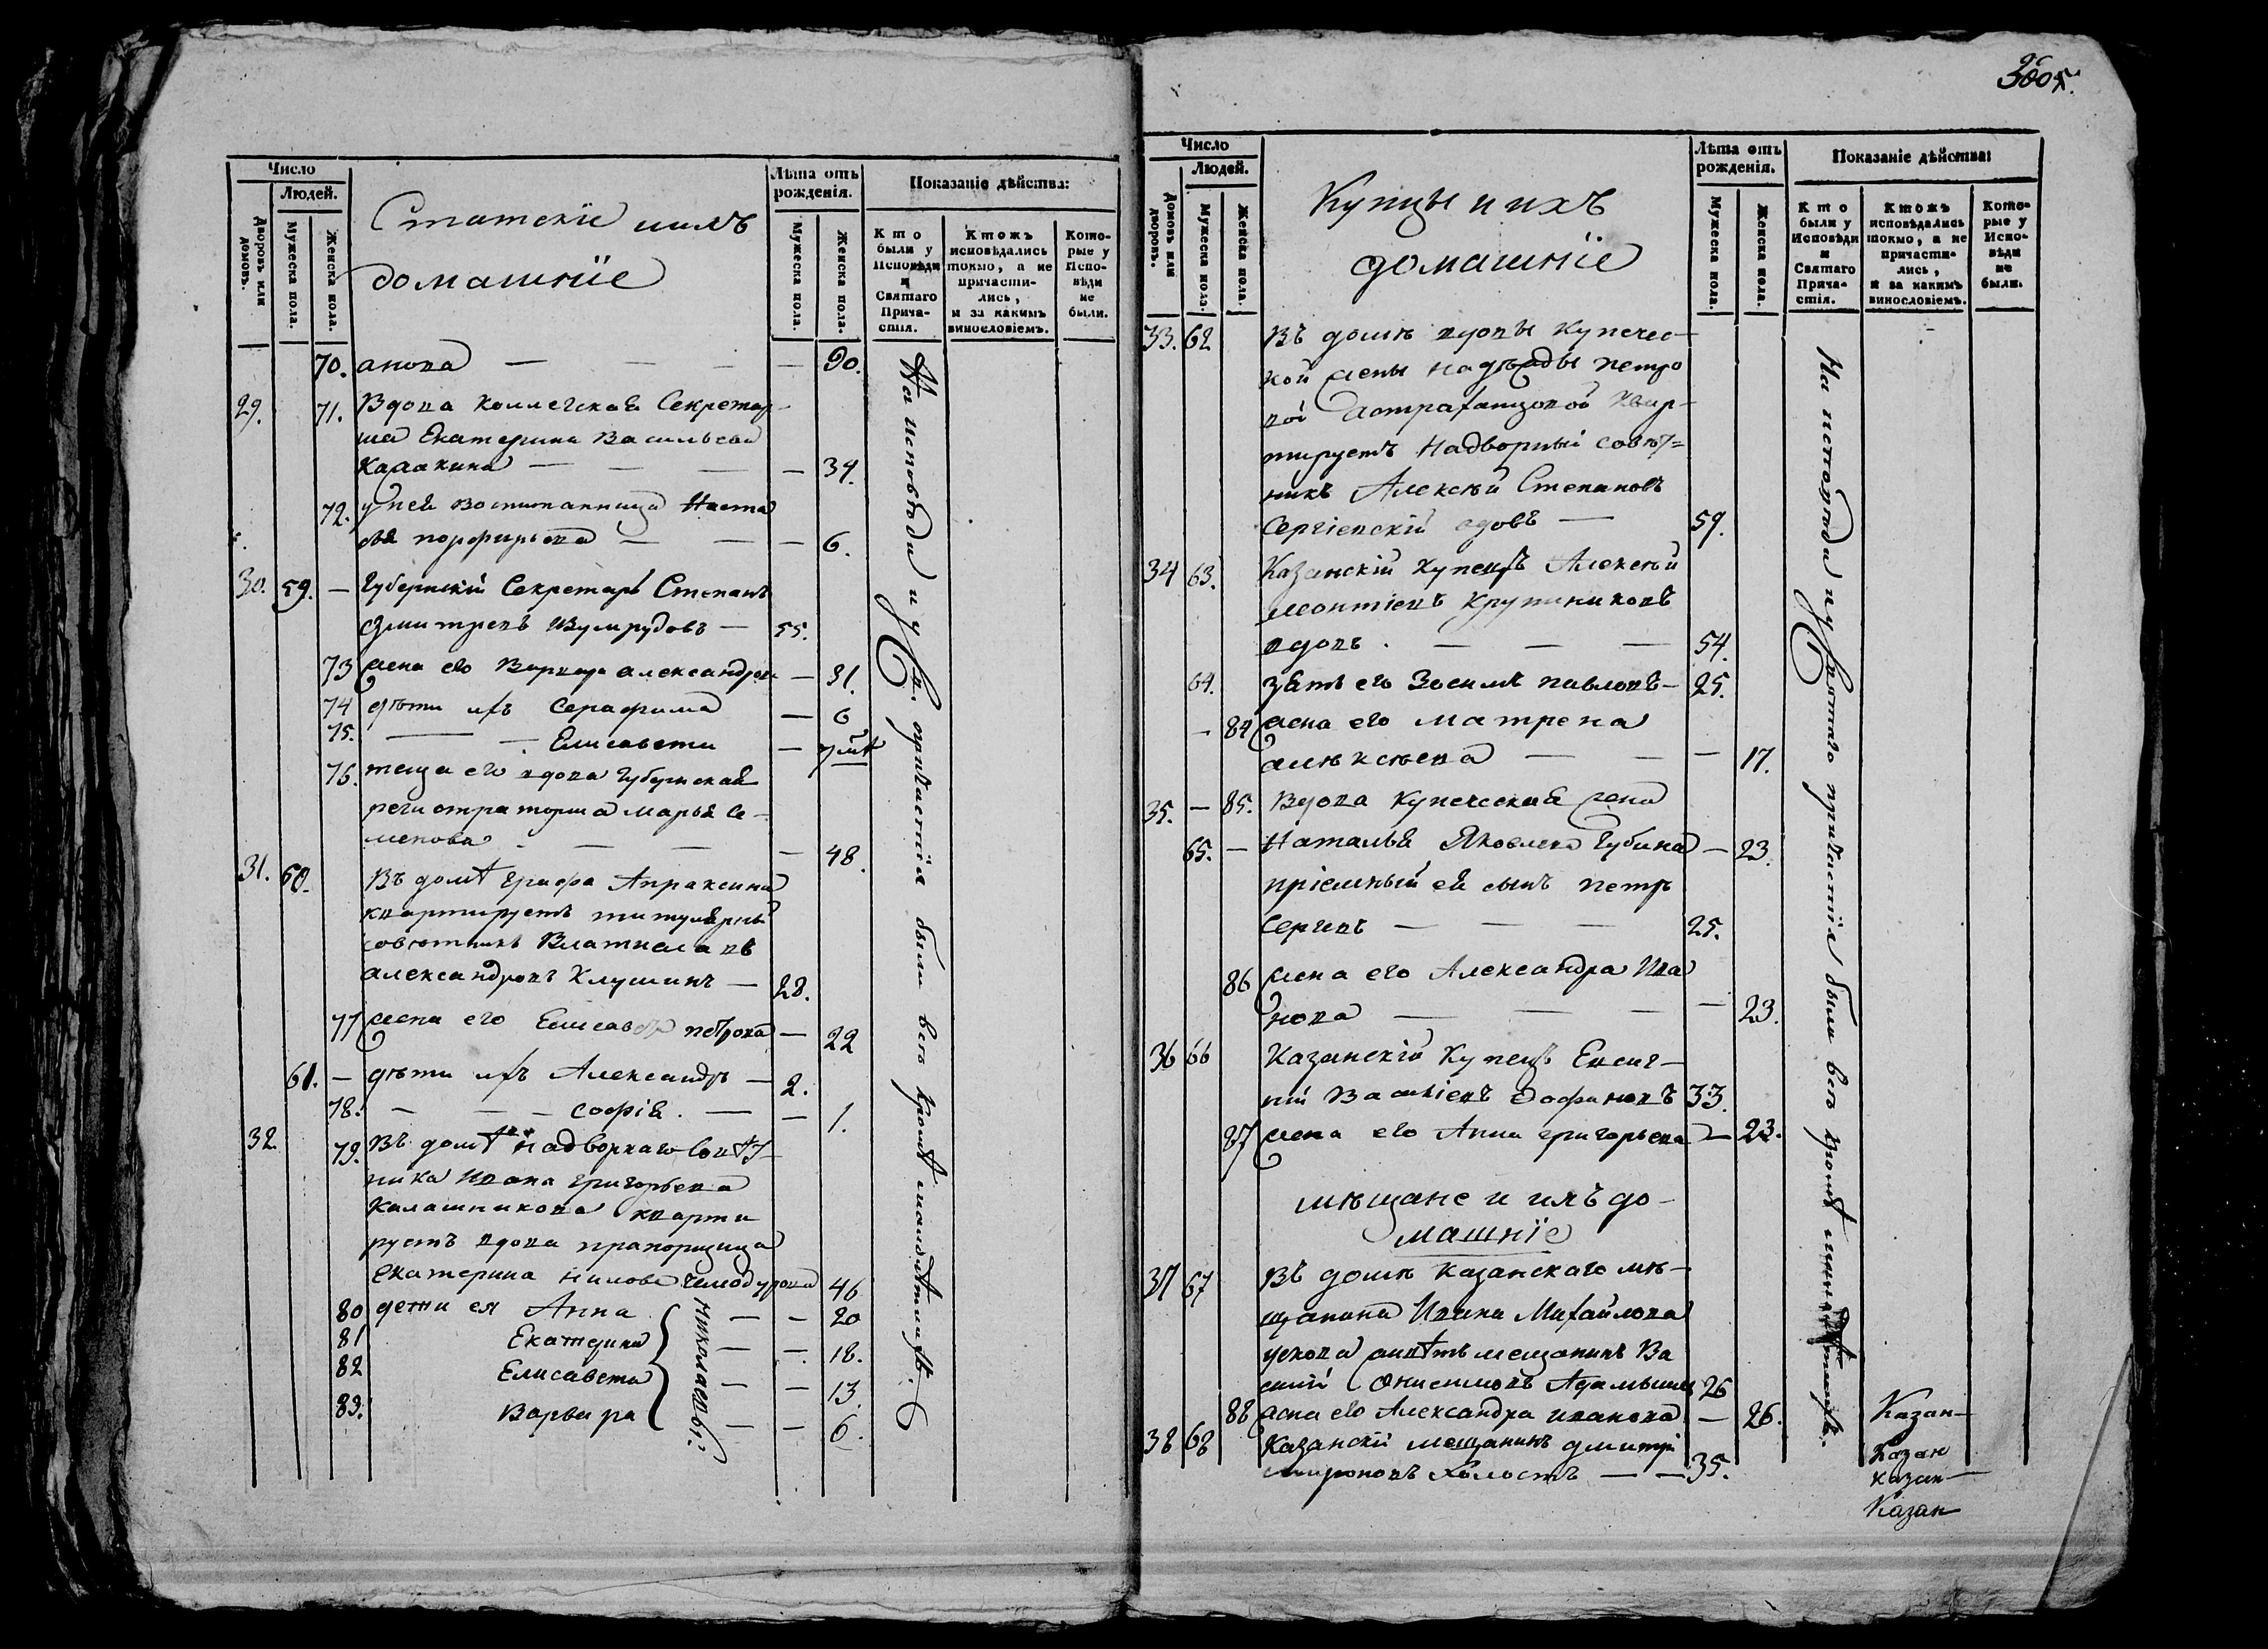 Число
Людей.
Дворовъ или домовъ.
Мужеска пола.
Женска пола.
Статскіе и ихъ
домашніе
Лѣта отъ рожденія.
Мужеска пола.
Женска пола.
Показаніе дѣйства:
Кто были у Исповѣди и Святаго Причастія.
Ктожъ исповѣдались токмо, а не причастились, и за какимъ винословіемъ.
Которые у Исповѣди не были.
70. анова — — — 20.
29. 71. Вдова Коллегская Секретар-
ша Екатерина Васильева
— — — — 34.
72. у ней воспитанница Наста
сья порфирьева — — — 6.
30. 59. — Губернскій Секретарь Степанъ
Дмитревъ Изумрудовъ — 55.
73 жена его Варвара александров — 31.
74 дѣти ихъ Серафима — 6
75. — — Елисавета —
76. теща его вдова Губернская
регистраторша Марья Се-
менова — — — 48.
31. 60. Въ домѣ Графа Апраксина
квартируетъ титулярный
совѣтникъ
александровъ Клушинъ — 28.
77 жена его Елисавета петрова — 22
61. — дѣти ихъ Александръ — 2.
78. — — — софія. — — 1.
32. 79. Въ домѣ надворнаго Совѣт-
ника Ивана григорьева
Калашникова кварти
руетъ вдова прапорщица
Екатерина Нилова Чемодурова 46
80 дети ея Анна — — 20
81 Екатерина — — 18.
82 Елисавета — — 13.
83. Варвара — — 6.
Николаевы
На исповѣди и у св. причастія были всѣ кромѣ малолѣтнихъ.
Число
Людей.
Домовъ или дворовъ.
Мужеска пола.
Женска пола.
Купцы и ихъ
домашніе
Лѣта отъ рожденія.
Мужеска пола.
Женска пола.
Показаніе дѣйства:
Кто были у Исповѣди и Святаго Причастія.
Ктожъ исповѣдались токмо, а не причастились, и за какимъ винословіемъ.
Которые у Исповѣди не были.
33. 62 Въ домѣ вдовы Купечес-
кой жены Надѣжды петро
вой Астраханцовой Квар-
тируетъ Надворный совѣт=
никъ Алексѣй Степановъ
Сергіевскій вдовъ — 59.
34 63. Казанскій Купецъ Алексѣй
леонтіевъ Крупниковъ
вдовъ. — — — 54.
64. зять его Зосима павловъ — 25.
— 84 жена его матрена
алѣксѣева — — — 17.
35. — 85. Вдова Купеческая жена
65. — Наталья Яковлева Губина — 23.
пріемный ея сынъ петръ
Сергѣевъ — — — 25.
86 жена его Александра Ива
нова — — — 23.
36 66 Казанскій Купецъ Евсиг-
ній Василіевъ 33.
87 жена его Анна григорьева — 23.
мѣщане и ихъ до-
машніе
37 67 Въ домѣ Казанскаго мѣ-
щанина Ивана Михайлова
живѣтъ мещанинъ Ва
силій Онисимовъ 26
88 жена его Александра иванова — 26.
38 68 Казанскій мещанинъ дмитрій
мироновъ холостъ — — 35.
На исповѣди и у святаго причастія были всѣ кромѣ
Казан—
Казан
Казан—
Казан